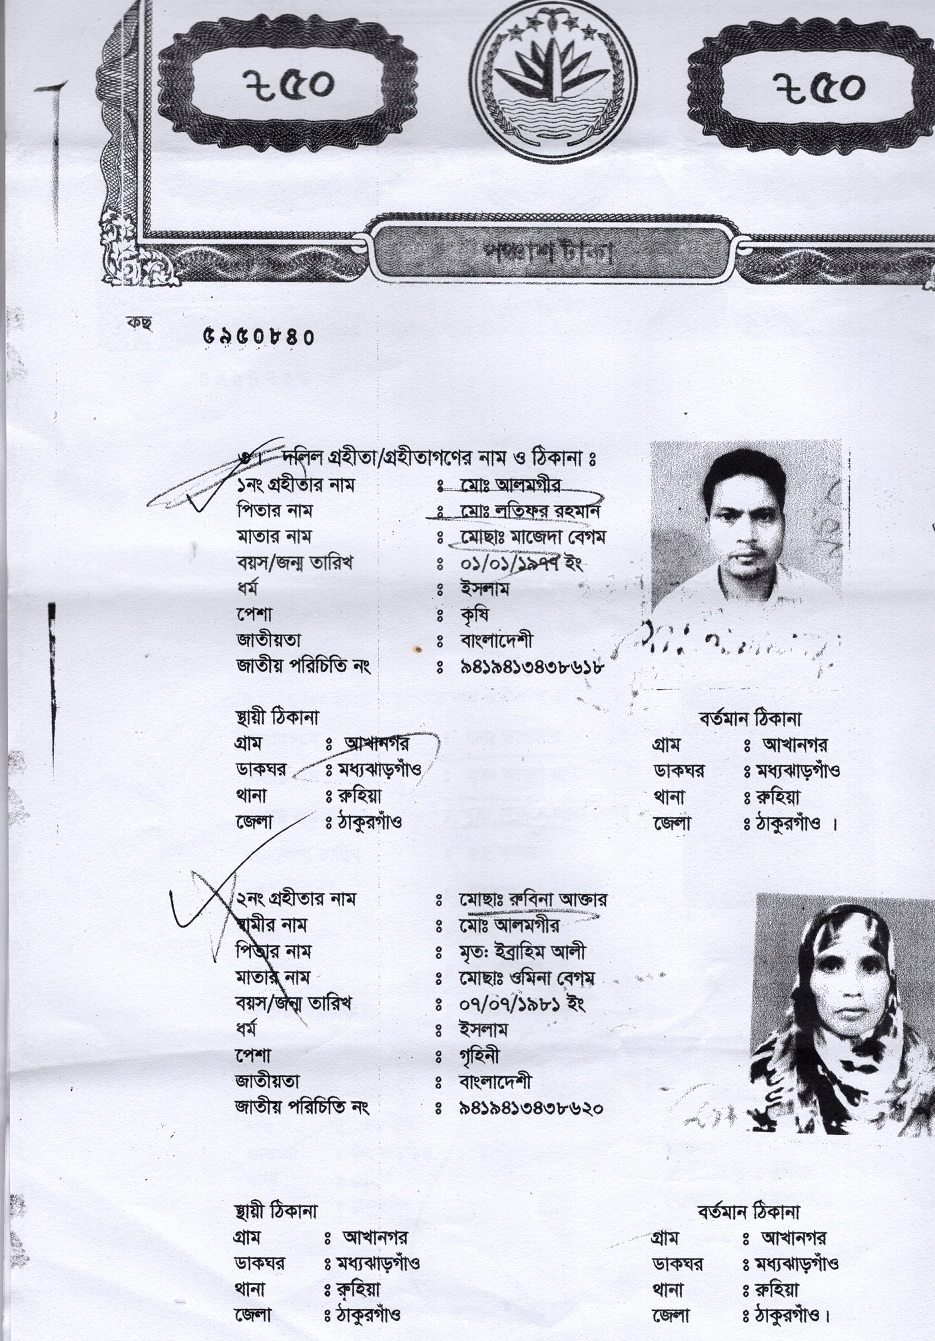 ৳৫০ ৳৫০
পঞ্চাশ টাকা
কছ ৫৯৫০৮৪০
৩। দলিল গ্রহীতা/গ্রহীতাগণের নাম ও ঠিকানা ঃ
১নং গ্রহীতার নাম ঃ মোঃ আলমগীর
পিতার নাম ঃ মোঃ লতিফর রহমান
মাতার নাম ঃ মোছাঃ মাজেদা বেগম
বয়স/জন্ম তারিখ ঃ ০১/০১/১৯৭৭ ইং
ধর্ম ঃ ইসলাম
পেশা ঃ কৃষি
জাতীয়তা ঃ বাংলাদেশী
জাতীয় পরিচিতি নং ঃ ৯৪১৯৪১৩৪৩৮৬১৮
স্থায়ী ঠিকানা বর্তমান ঠিকানা
গ্রাম ঃ আখানগর গ্রাম ঃ আখানগর
ডাকঘর ঃ মধ্যঝাড়গাঁও ডাকঘর ঃ মধ্যঝাড়গাঁও
থানা ঃ রুহিয়া থানা ঃ রুহিয়া
জেলা ঃ ঠাকুরগাঁও জেলা ঃ ঠাকুরগাঁও ।
২নং গ্রহীতার নাম ঃ মোছাঃ রুবিনা আক্তার
স্বামীর নাম ঃ মোঃ আলমগীর
পিতার নাম ঃ মৃতঃ ইব্রাহিম আলী
মাতার নাম ঃ মোছাঃ ওমিনা বেগম
বয়স/জন্ম তারিখ ঃ ০৭/০৭/১৯৮১ ইং
ধর্ম ঃ ইসলাম
পেশা ঃ গৃহিনী
জাতীয়তা ঃ বাংলাদেশী
জাতীয় পরিচিতি নং ঃ ৯৪১৯৪১৩৪৩৮৬২০
স্থায়ী ঠিকানা বর্তমান ঠিকানা
গ্রাম ঃ আখানগর গ্রাম ঃ আখানগর
ডাকঘর ঃ মধ্যঝাড়গাঁও ডাকঘর ঃ মধ্যঝাড়গাঁও
থানা ঃ রুহিয়া থানা ঃ রুহিয়া
জেলা ঃ ঠাকুরগাঁও জেলা ঃ ঠাকুরগাঁও।